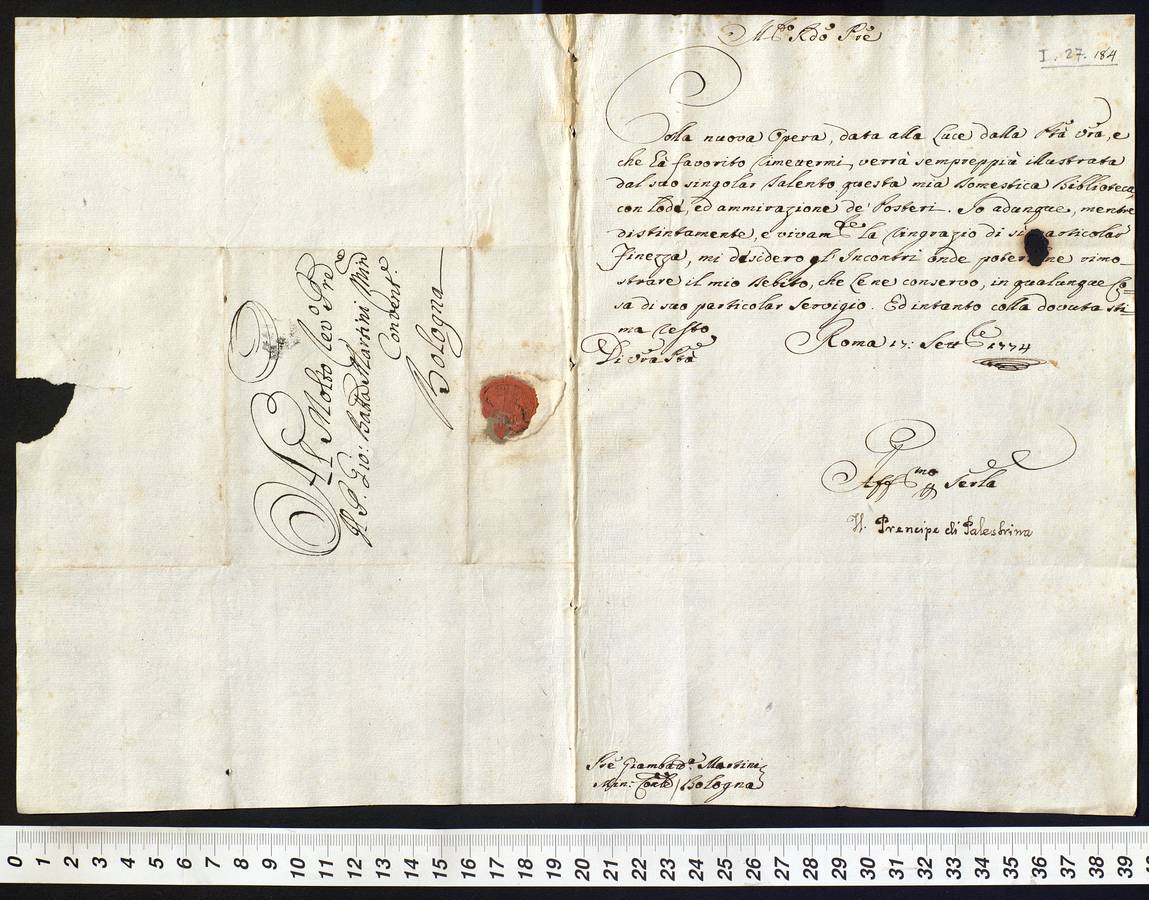 Al Molto Rev.º Pre
P. Gio: Batta Martini Min
Convent.e
Bologna
M.to Rdo Pre
I. 27. 184
Colla nuova Opera, data alla Luce dalla Ptà Vra, e
che hà favorito rimettermi, verrà sempreppiù illustrata
dal suo singolar Talento questa mia Domestica Biblioteca,
con lode, ed ammirazione de' Posteri. Io adunque, mentre
distintamente, e vivam.te La ringrazio di si particolar
Finezza, mi desidero gl'Incontri onde poterne dimo-
strare il mio Debito, che Le ne conservo, in qualunque Co-
sa di suo particolar Servigio. Ed intanto colla dovuta sti-
ma resto
Di Vra Ptà
Roma 17: Sett.e 1774
Aff.mo Serla
Il Prencipe di Palestrina
Pre Giambatta Martini
Min: Conle / Bologna
0 1 2 3 4 5 6 7 8 9 10 11 12 13 14 15 16 17 18 19 20 21 22 23 24 25 26 27 28 29 30 31 32 33 34 35 36 37 38 39